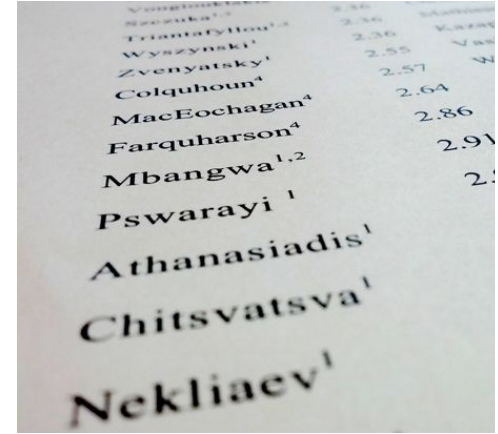 Szczuka¹,³ 2.36
Triantafyllou¹,³ 2.36
Wyszynski¹ 2.36
Zvenyatsky¹ 2.55
Colquhoun⁴ 2.57
MacEochagan⁴ 2.64
Farquharson⁴ 2.86
Mbangwa¹,² 2.91
Pswarayi ¹
Athanasiadis¹
Chitsvatsva¹
Nekliaev¹